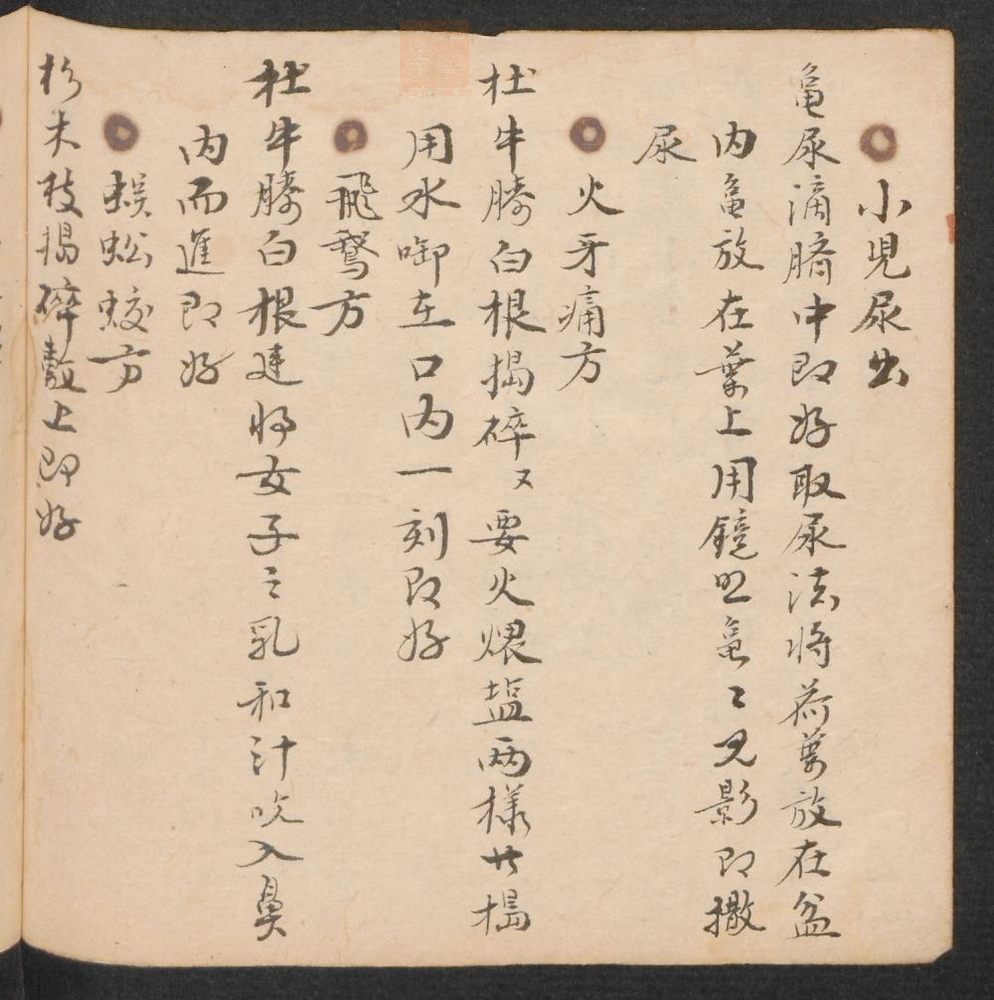 小児尿出
亀尿滴臍中即好取尿法将荷葉放在盆
内亀放在葉上用鏡照亀〻見影即撒
尿
火牙痛方
杜牛膝白根搗碎又要火煨塩両様共搗
用水啣在口内一刻即好
飛鵞方
杜牛膝白根連将女子之乳和汁吹入鼻
内而進即好
蜈蚣蛟方
杉木枝搗碎敷上即好